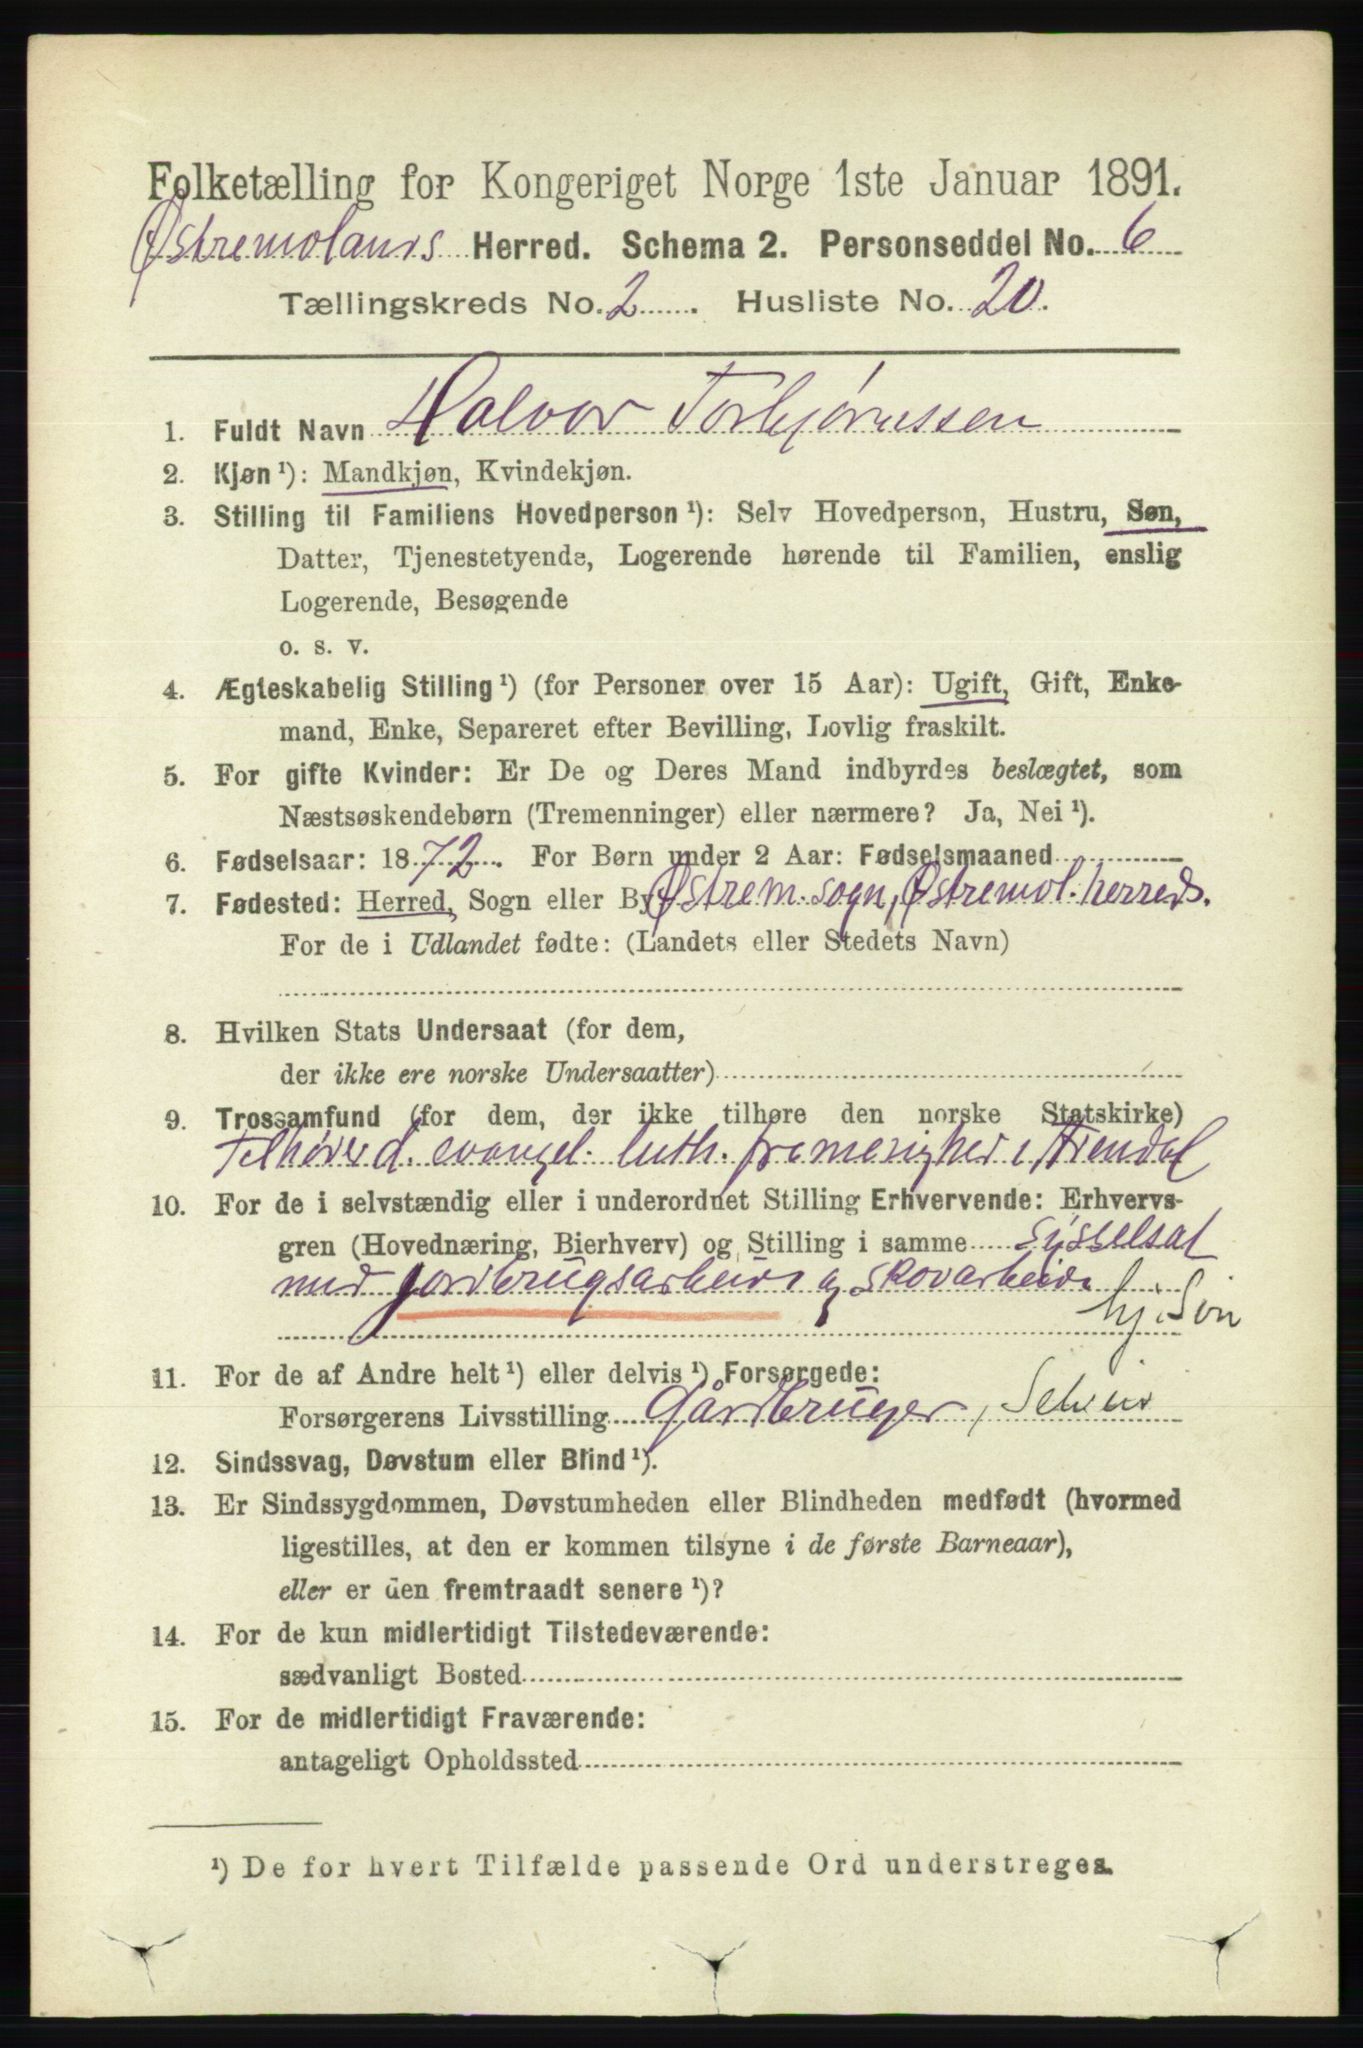 Folketælling for Kongeriget Norge 1ste Januar 1891.
Østremolands Herred. Schema 2. Personseddel No. 6
Tællingskreds No. 2. Husliste No. 20.
1. Fuldt Navn Halvor Torbjørnssen
2. Kjøn ¹): Mandkjøn, Kvindekjøn.
3. Stilling til Familiens Hovedperson ¹): Selv Hovedperson, Hustru, Søn,
Datter, Tjenestetyende, Logerende hørende til Familien, enslig
Logerende, Besøgende
o. s. v.
4. Ægteskabelig Stilling ¹) (for Personer over 15 Aar): Ugift, Gift, Enke-
mand, Enke, Separeret efter Bevilling, Lovlig fraskilt.
5. For gifte Kvinder: Er De og Deres Mand indbyrdes beslægtet, som
Næstsøskendebørn (Tremenninger) eller nærmere? Ja, Nei ¹).
6. Fødselsaar: 1872. For Børn under 2 Aar: Fødselsmaaned
7. Fødested: Herred, Sogn eller By Østrem. sogn, Østremol. herreds.
For de i Udlandet fødte: (Landets eller Stedets Navn)
8. Hvilken Stats Undersaat (for dem,
der ikke ere norske Undersaatter)
9. Trossamfund (for dem, der ikke tilhøre den norske Statskirke)
Tilhører d. evangel. luth. frimenighed i Arendal
10. For de i selvstændig eller i underordnet Stilling Erhvervende: Erhvervs-
gren (Hovednæring, Bierhverv) og Stilling i samme sysselsat
med jordbrugsarbeide og skovarbeide
hj. Søn
11. For de af Andre helt ¹) eller delvis ¹) Forsørgede:
Forsørgerens Livsstilling Gårdbruger, Selveier
12. Sindssvag, Døvstum eller Blind ¹).
13. Er Sindssygdommen, Døvstumheden eller Blindheden medfødt (hvormed
ligestilles, at den er kommen tilsyne i de første Barneaar),
eller er den fremtraadt senere ¹)?
14. For de kun midlertidigt Tilstedeværende:
sædvanligt Bosted
15. For de midlertidigt Fraværende:
antageligt Opholdssted
¹) De for hvert Tilfælde passende Ord understreges.